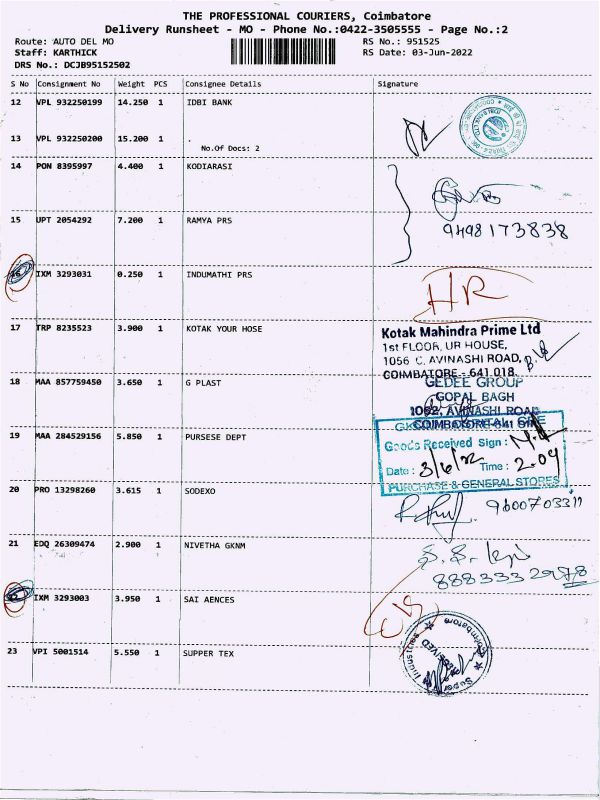 THE PROFESSIONAL COURIERS, Coimbatore
Delivery Runsheet - MO - Phone No.:0422-3505555 - Page No.:2
Route: AUTO DEL MO
RS No.: 951525
Staff: KARTHICK
RS Date: 03-Jun-2022
DRS No.: DCJB95152502
S No Consignment No Weight PCS Consignee Details Signature
12 VPL 932250199 14.250 1 IDBI BANK
13 VPL 932250200 15.200 1 .
No.Of Docs: 2
14 PON 8395997 4.400 1 KODIARASI
15 UPT 2054292 7.200 1 RAMYA PRS
9498173838
16 IXM 3293031 0.250 1 INDUMATHI PRS
HR
17 TRP 8235523 3.900 1 KOTAK YOUR HOSE
Kotak Mahindra Prime Ltd
1st FLOOR, UR HOUSE,
1056 C, AVINASHI ROAD,
COIMBATORE - 641 018.
18 MAA 857759450 3.650 1 G PLAST
GEDEE GROUP
GOPAL BAGH
1062, AVINASHI ROAD
19 MAA 284529156 5.850 1 PURSESE DEPT
Goods Received Sign :
Date : 3/6/22 Time : 2.09
PURCHASE & GENERAL STORES
20 PRO 13298260 3.615 1 SODEXO
21 EDQ 26309474 2.900 1 NIVETHA GKNM
IXM 3293003 3.950 1 SAI AENCES
23 VPI 5001514 5.550 1 SUPPER TEX